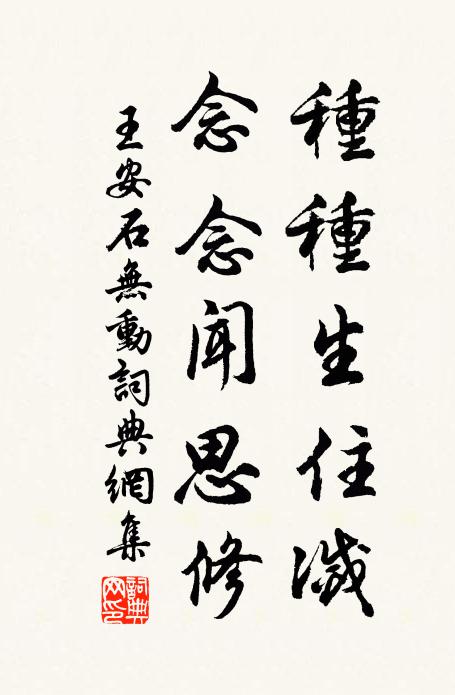 種種生住滅
念念聞思修
王安石無動詞典網集
詞典网印